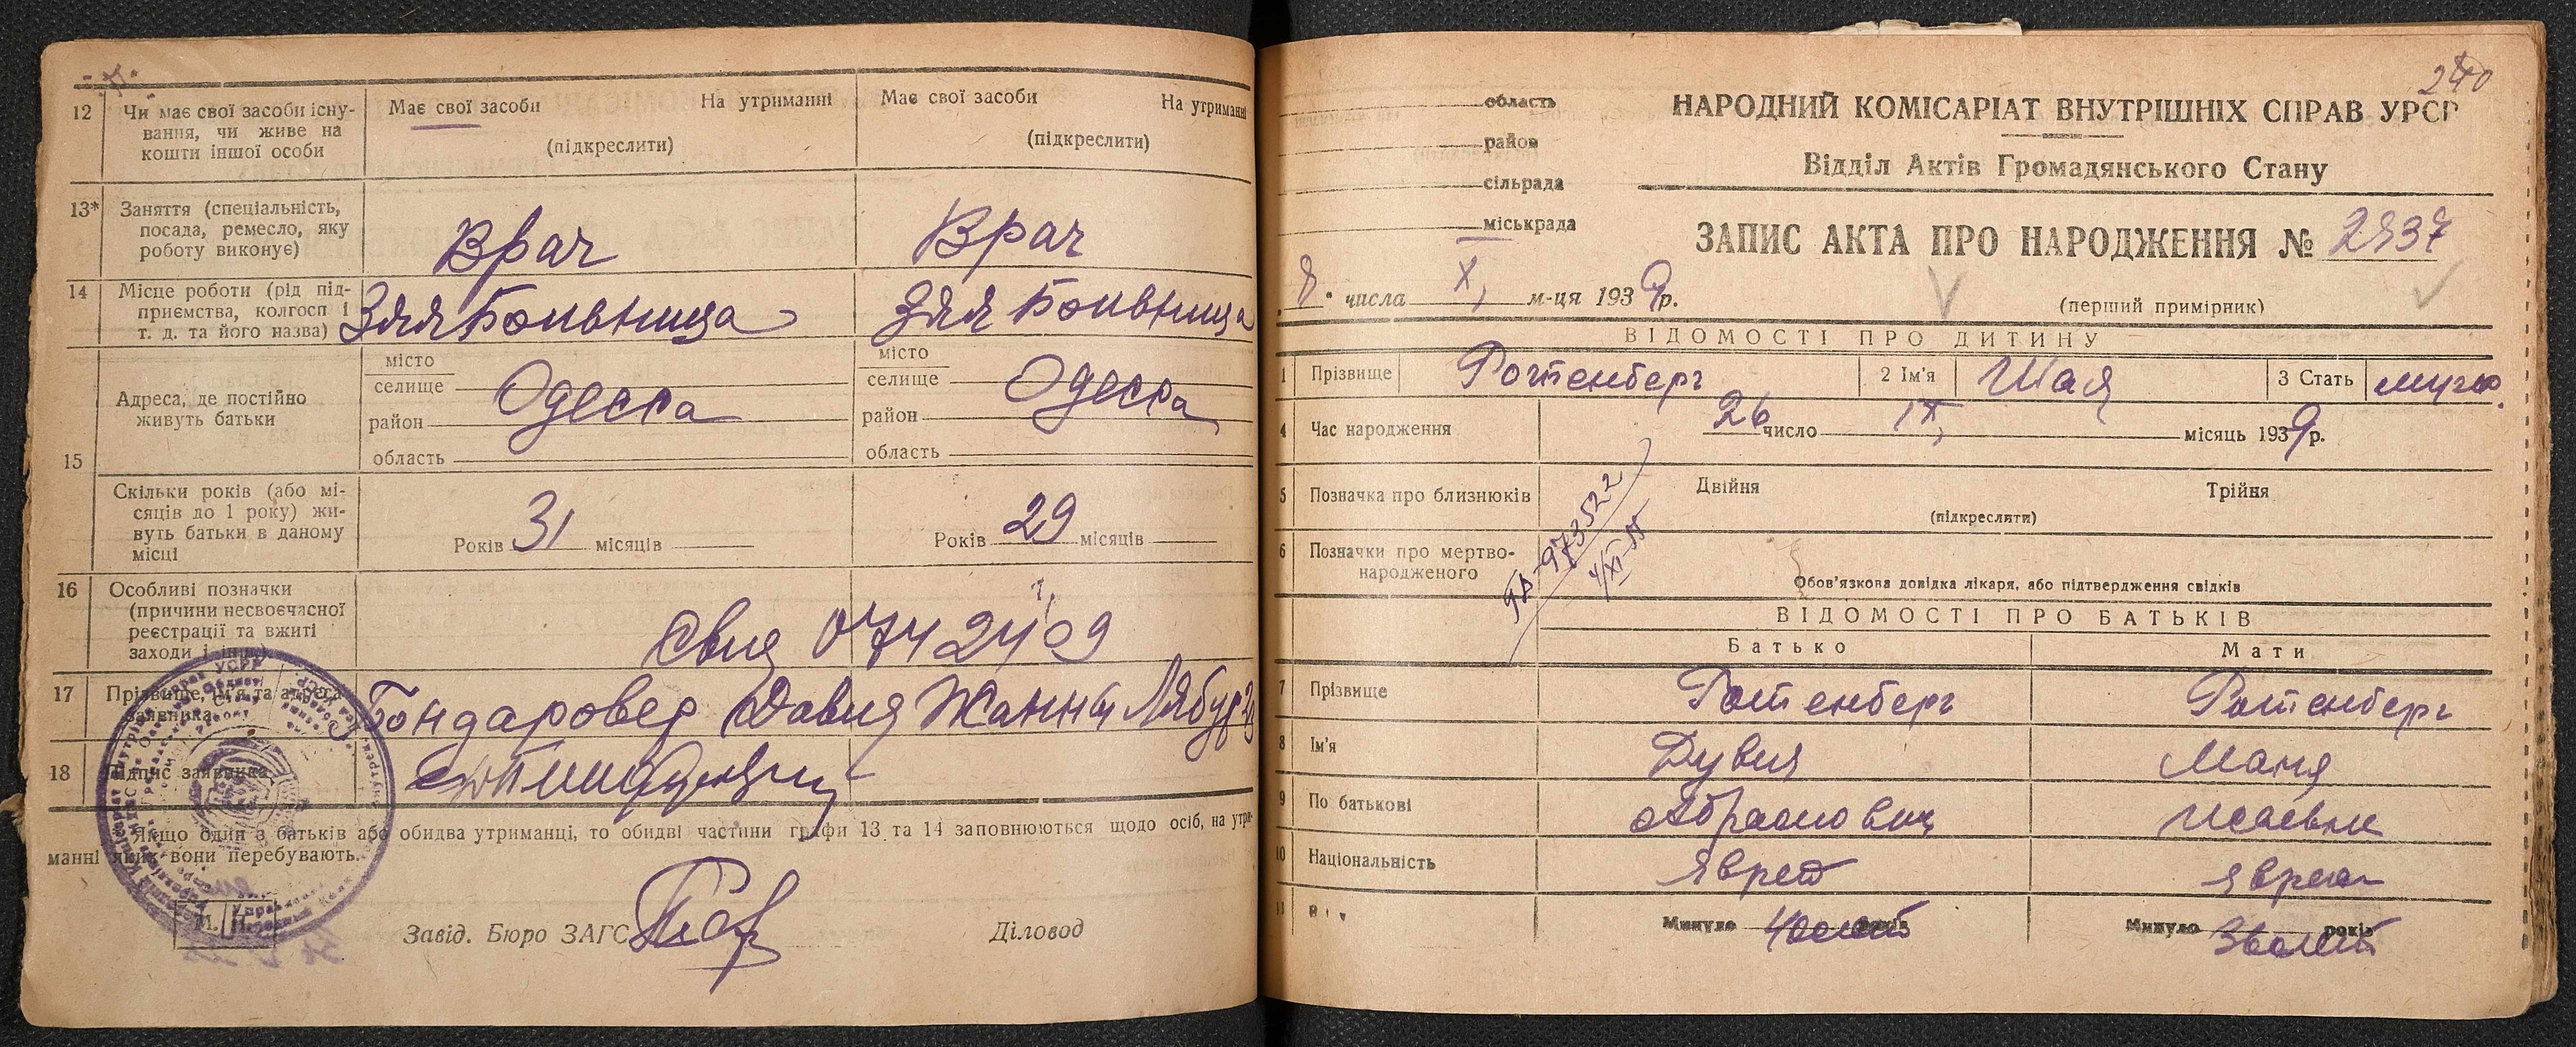 12 Чи має свої засоби існу-
вання, чи живе на
кошти іншої особи
Має свої засоби На утриманні
(підкреслити)
Має свої засоби На утриманні
(підкреслити)
13* Заняття (спеціальність,
посада, ремесло, яку
роботу виконує)
Врач
Врач
14 Місце роботи (рід під-
приємства, колгосп і
т. д. та його назва)
Больница
Больница
15 Адреса, де постійно
живуть батьки
місто
селище
район
область
Одесса
місто
селище
район
область
Одесса
Скільки років (або мі-
сяців до 1 року) жи-
вуть батьки в даному
місці
Років 31 місяців
Років 29 місяців
16 Особливі позначки
(причини несвоєчасної
реєстрації та вжиті
заходи і інш.)
17 Прізвище, ім'я та адреса
заявника
Бондаровер Давид Жанны Лябурб
18 Підпис заявника
Якщо один з батьків або обидва утриманці, то обидві частини графи 13 та 14 заповнюються щодо осіб, на утри-
манні яких вони перебувають.
Завід. Бюро ЗАГС
Діловод
240
область
район
сільрада
міськрада
НАРОДНИЙ КОМІСАРІАТ ВНУТРІШНІХ СПРАВ УРСР
Відділ Актів Громадянського Стану
ЗАПИС АКТА ПРО НАРОДЖЕННЯ № 2937
8 числа X м-ця 1939 р.
(перший примірник)
ВІДОМОСТІ ПРО ДИТИНУ
1 Прізвище Ротенберг 2 Ім'я Шая 3 Стать мужс.
4 Час народження 26 число IX, місяць 1939 р.
5 Позначка про близнюків Двійня Трійня
(підкреслити)
6 Позначки про мертво-
народженого
Обов'язкова довідка лікаря, або підтвердження свідків
ВІДОМОСТІ ПРО БАТЬКІВ
Батько Мати
7 Прізвище Ротенберг Ротенберг
8 Ім'я Дувид Маня
9 По батькові Абрамович Исаевна
10 Національність Яврей Яврей
11 Вік Минуло 40 лет років Минуло 36 лет років